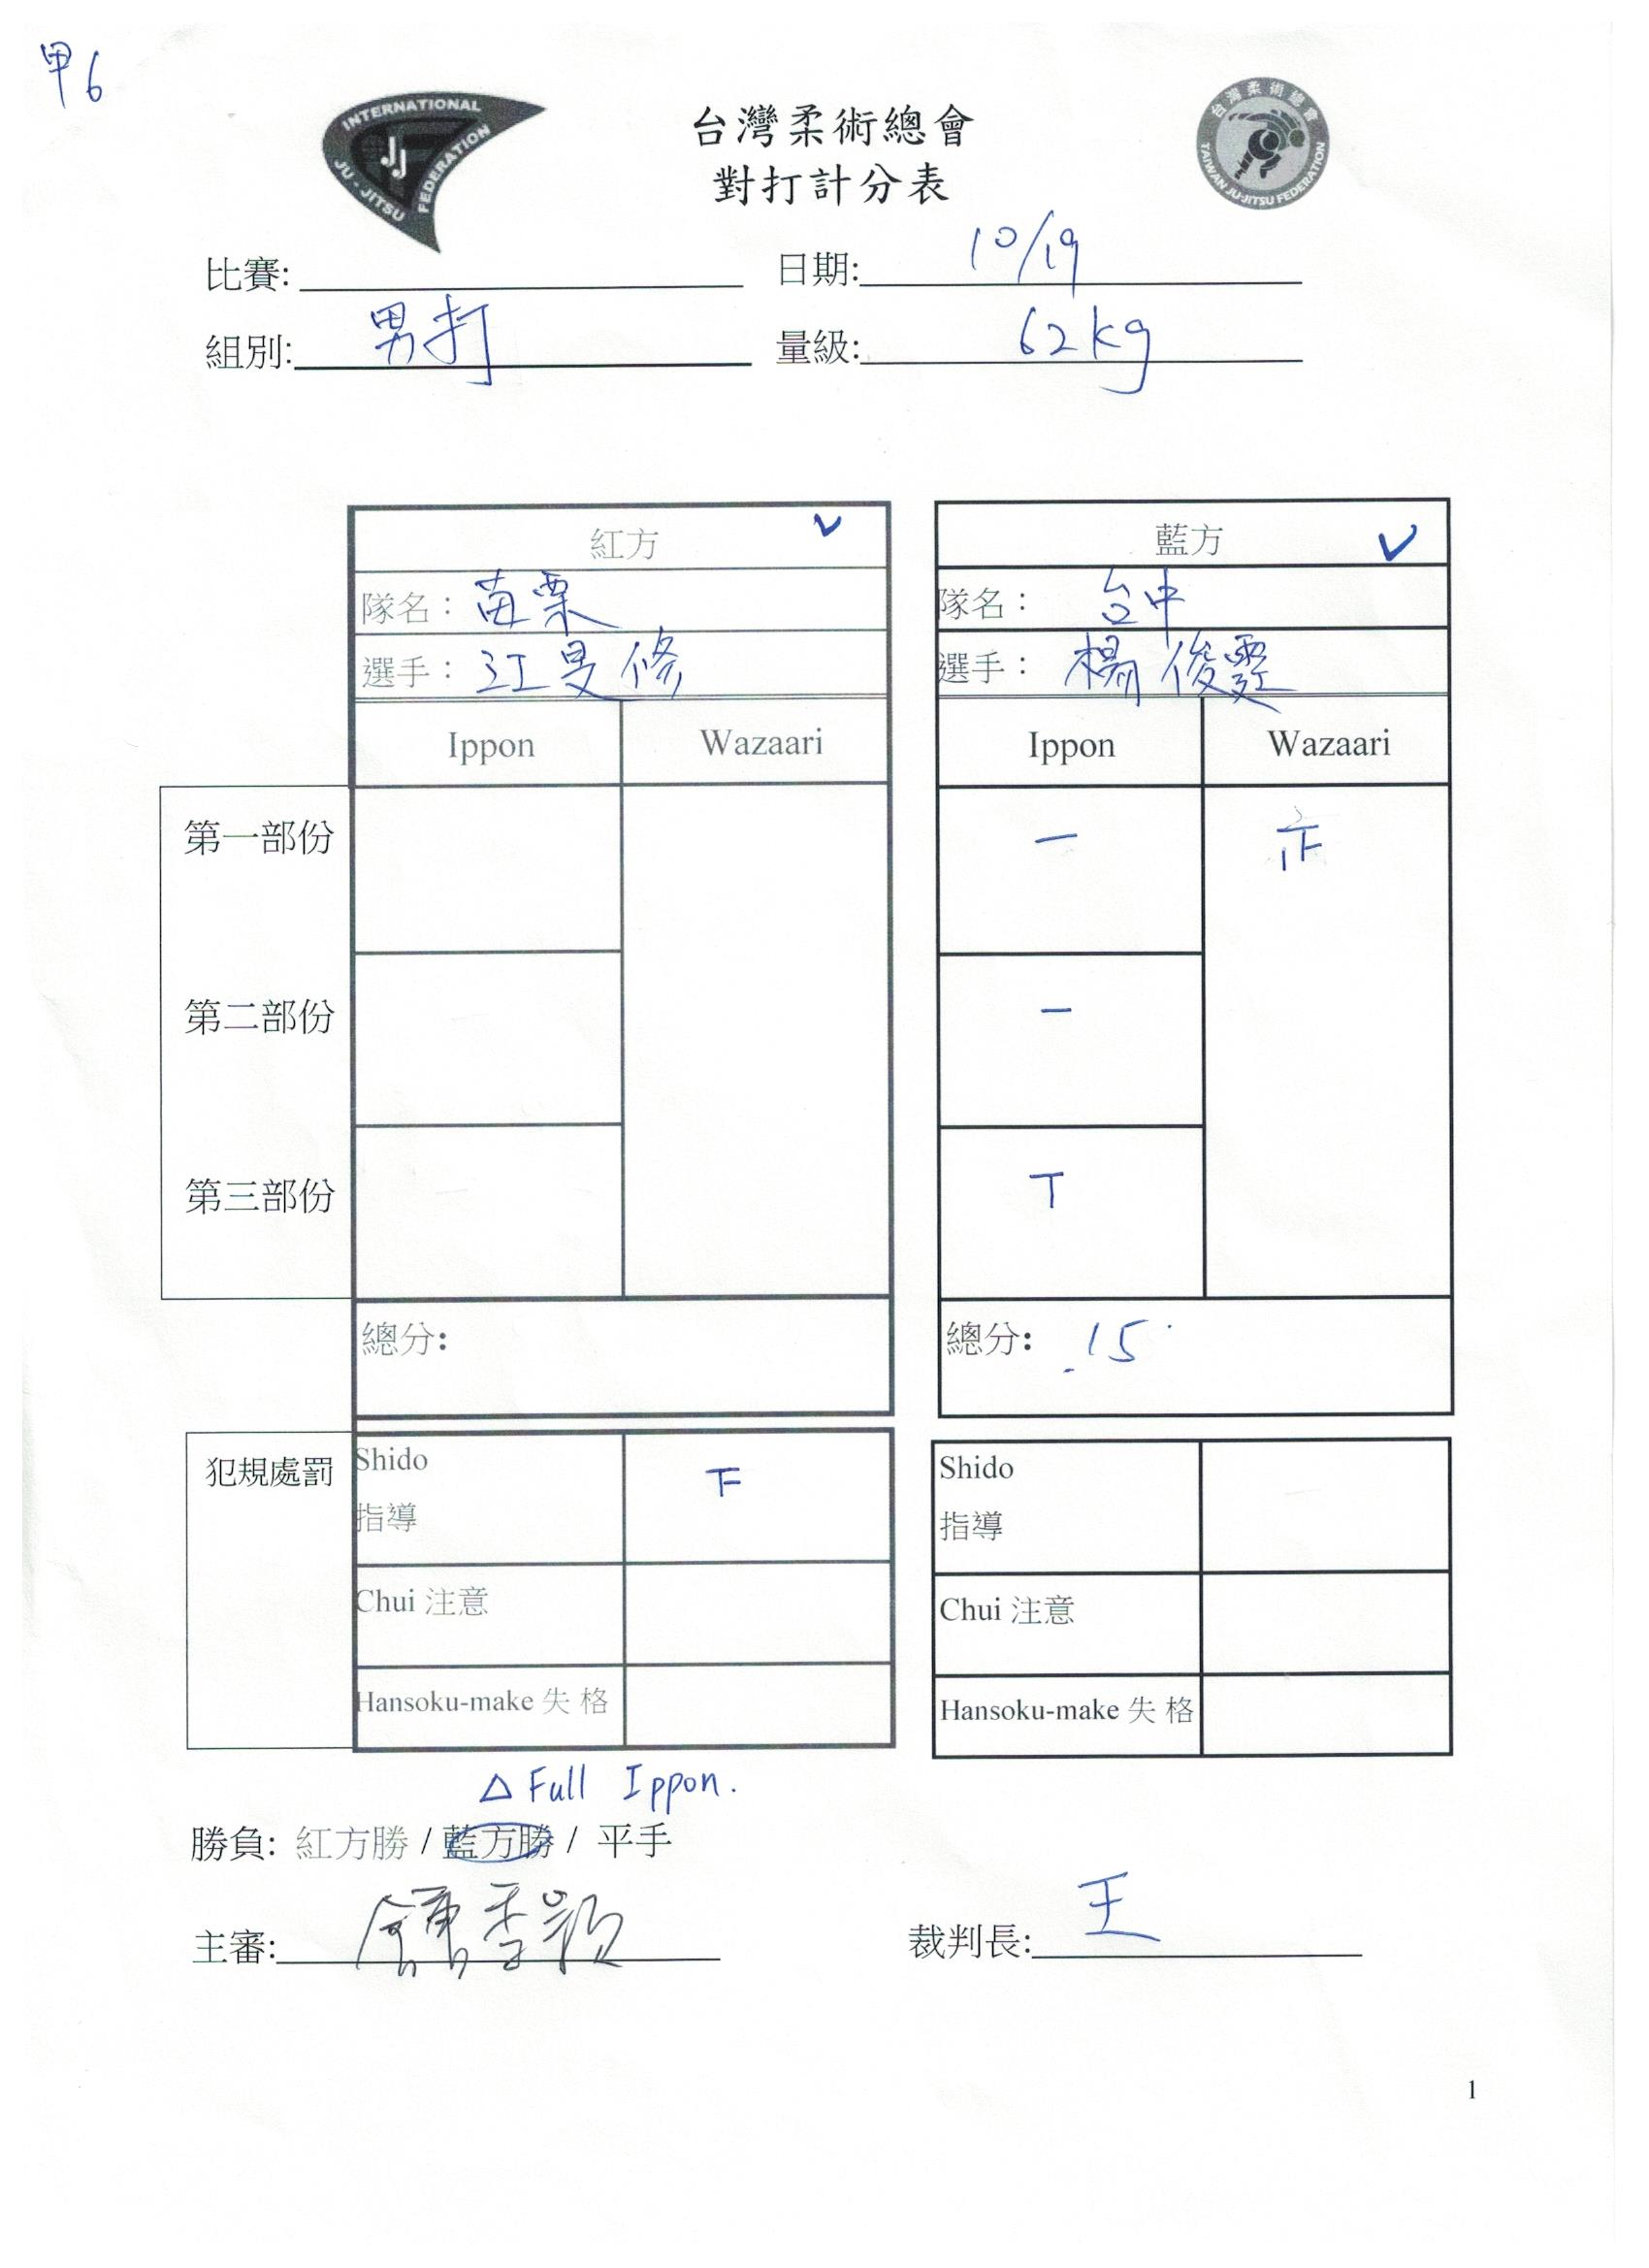 甲6
INTERNATIONAL
JJ
JU-JITSU FEDERATION
台灣柔術總會
TAIWAN JU-JITSU FEDERATION
台灣柔術總會
對打計分表
比賽: 日期: 10/19
組別: 男打 量級: 62kg
紅方 ✓ 藍方 ✓
隊名：苗栗 隊名：台中
選手：江旻修 選手：楊俊霆
Ippon Wazaari Ippon Wazaari
第一部份 一
第二部份 一
第三部份 T
總分: 總分: 15
犯規處罰 Shido 下 Shido
指導 指導
Chui 注意 Chui 注意
Hansoku-make 失 格 Hansoku-make 失 格
△ Full Ippon.
勝負: 紅方勝 / 藍方勝 / 平手
主審: 裁判長: 王
1